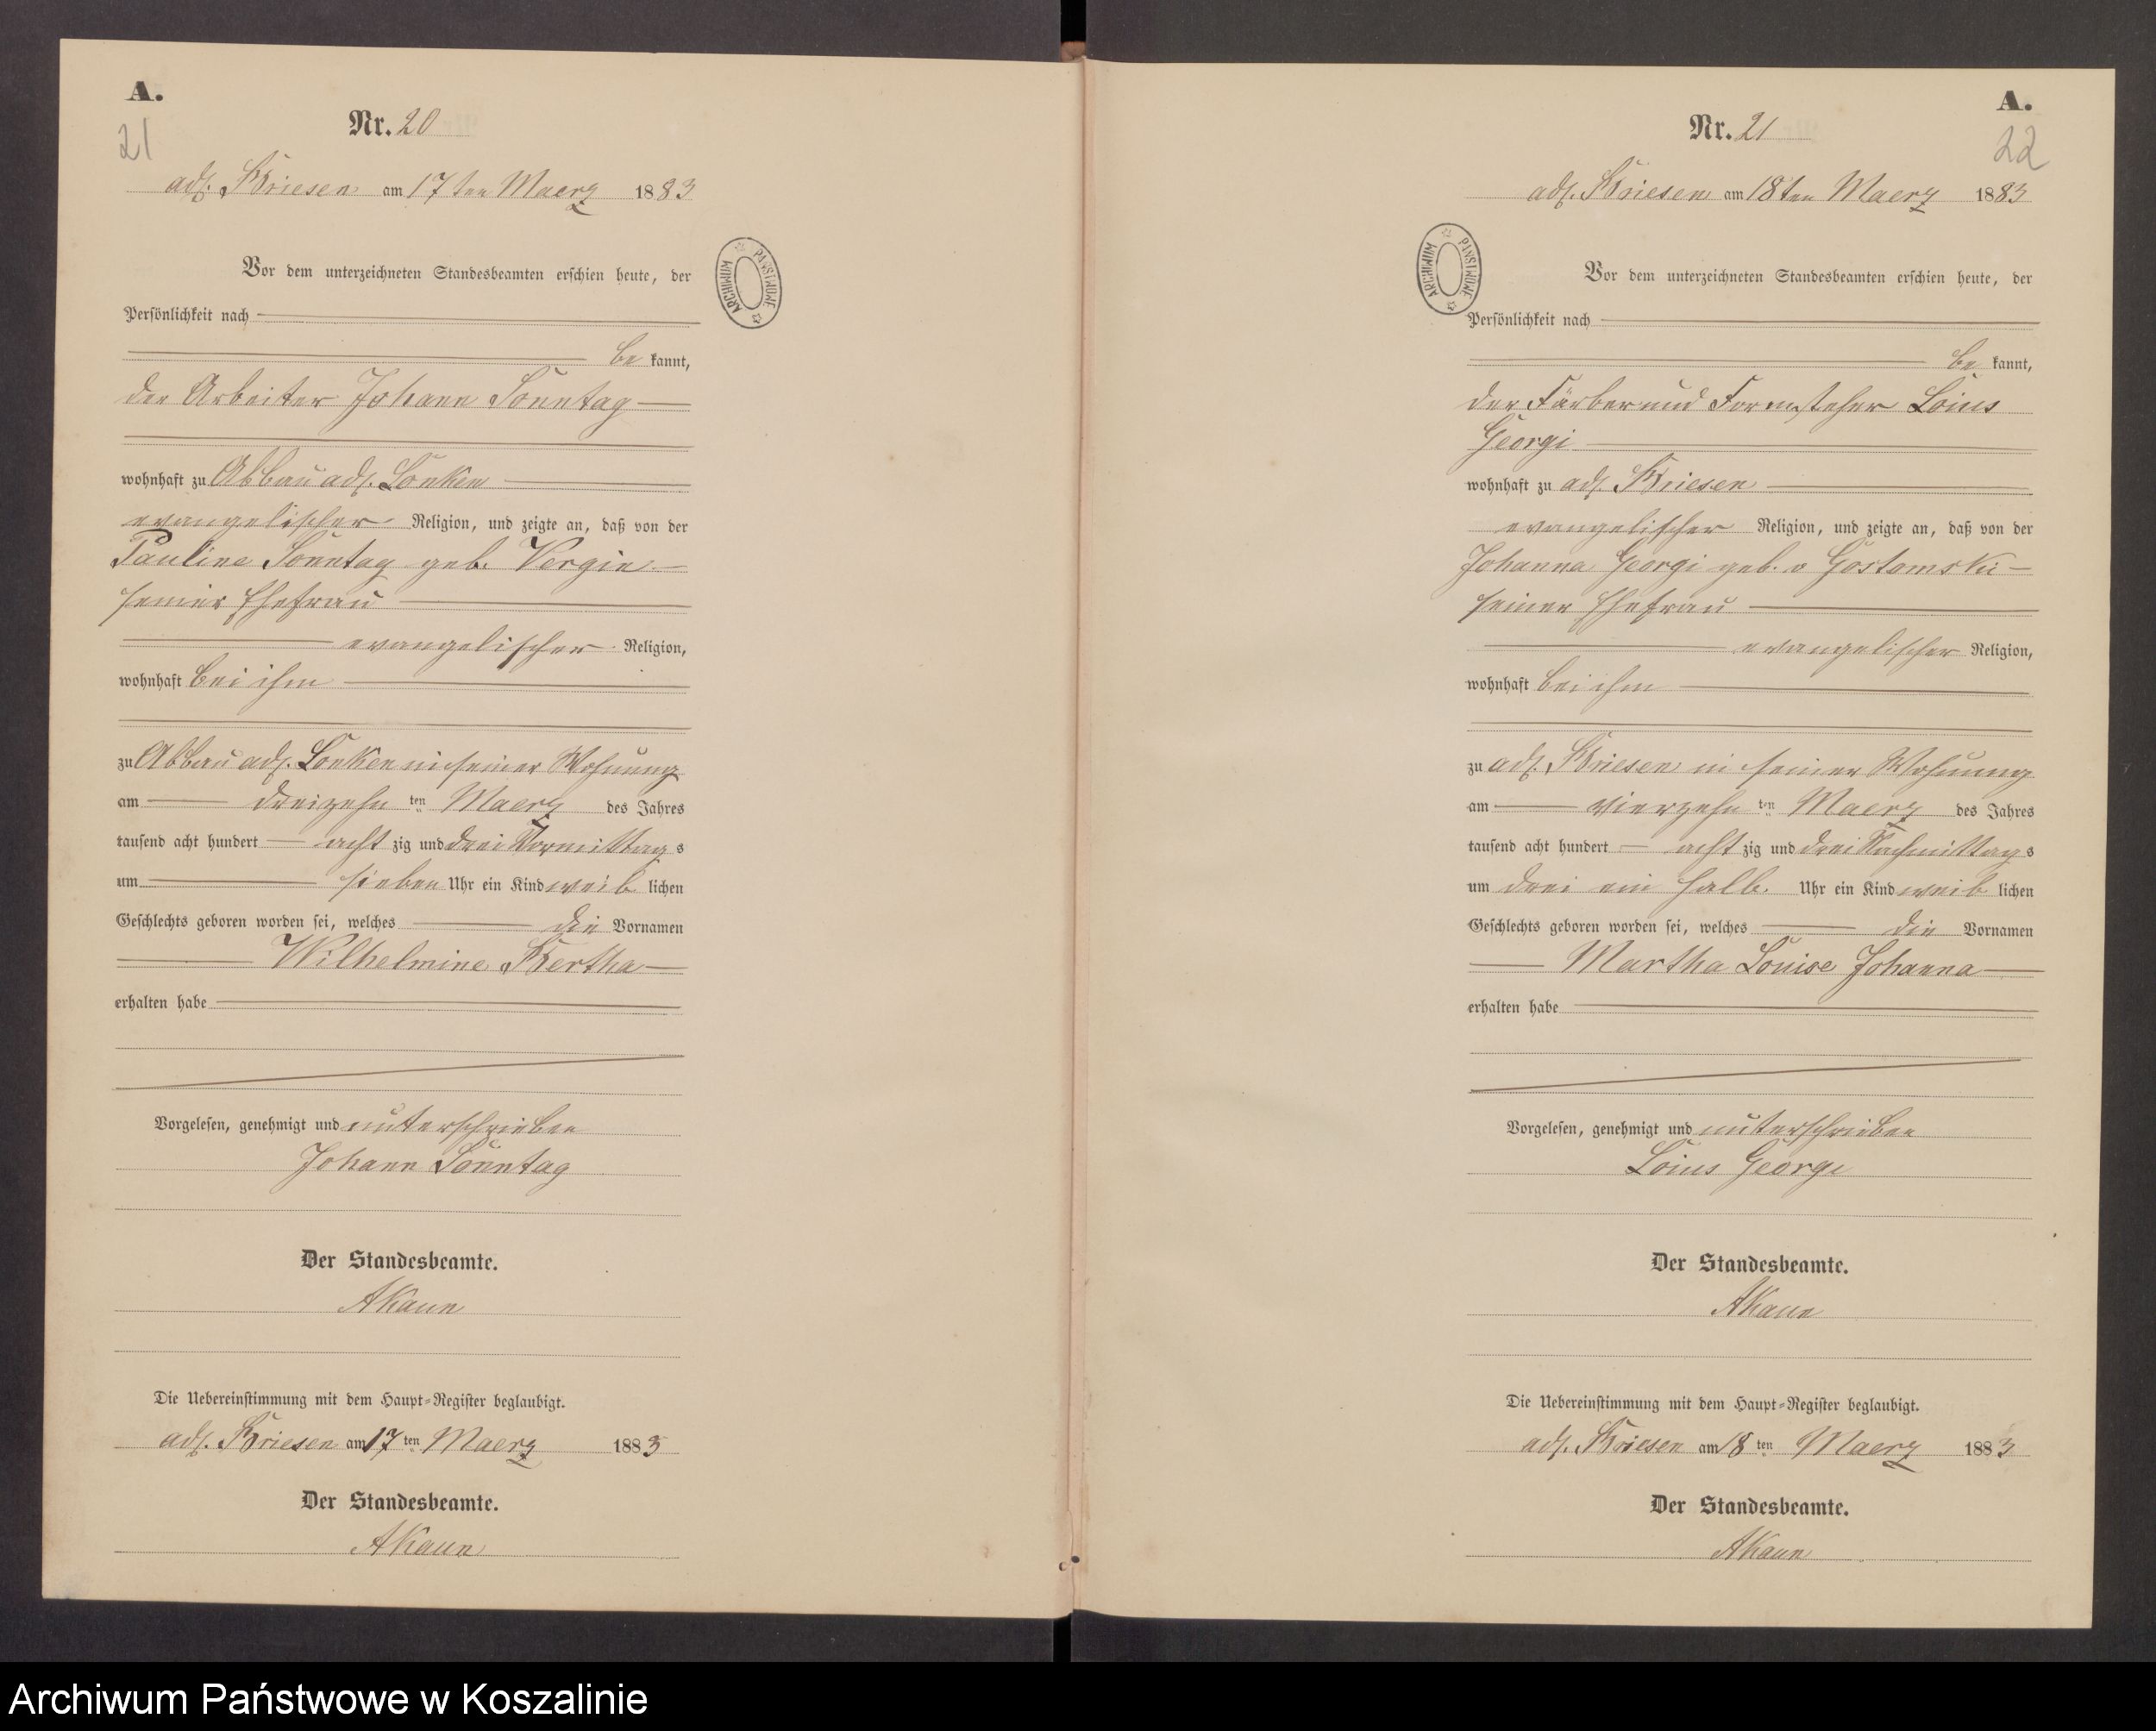 A.
21
Nr. 20
adl. Briesen am 17ten Maerz 1883
Vor dem unterzeichneten Standesbeamten erschien heute, der
Persönlichkeit nach
be kannt,
der Arbeiter Johann Sonntag
wohnhaft zu Abbau adl. Lonken
evangelischer Religion, und zeigte an, daß von der
Pauline Sonntag geb. Vergin
seiner Ehefrau
evangelischer Religion,
wohnhaft bei ihm
zu Abbau adl. Lonken in seiner Wohnung
am dreizehn ten Maerz des Jahres
tausend acht hundert acht zig und drei Vormittag s
um sieben Uhr ein Kind weib lichen
Geschlechts geboren worden sei, welches die Vornamen
Wilhelmine Bertha
erhalten habe
Vorgelesen, genehmigt und unterschrieben
Johann Sonntag
Der Standesbeamte.
AKaun
Die Uebereinstimmung mit dem Haupt-Register beglaubigt.
adl. Briesen am 17 ten Maerz 1883
Der Standesbeamte.
AKaun
ARCHIWUM PAŃSTWOWE
A.
22
Nr. 21
adl. Briesen am 18ten Maerz 1883
Vor dem unterzeichneten Standesbeamten erschien heute, der
Persönlichkeit nach
be kannt,
der Färber und Formsteher Loius
Georgi
wohnhaft zu adl. Briesen
evangelischer Religion, und zeigte an, daß von der
Johanna Georgi geb. v Gostomski
seiner Ehefrau
evangelischer Religion,
wohnhaft bei ihm
zu adl. Briesen in seiner Wohnung
am vierzehn ten Maerz des Jahres
tausend acht hundert acht zig und drei Nachmittag s
um drei ein halb. Uhr ein Kind weib lichen
Geschlechts geboren worden sei, welches die Vornamen
Martha Louise Johanna
erhalten habe
Vorgelesen, genehmigt und unterschrieben
Loius Georgi
Der Standesbeamte.
AKaun
Die Uebereinstimmung mit dem Haupt-Register beglaubigt.
adl. Briesen am 18 ten Maerz 1883
Der Standesbeamte.
AKaun
ARCHIWUM PAŃSTWOWE
Archiwum Państwowe w Koszalinie